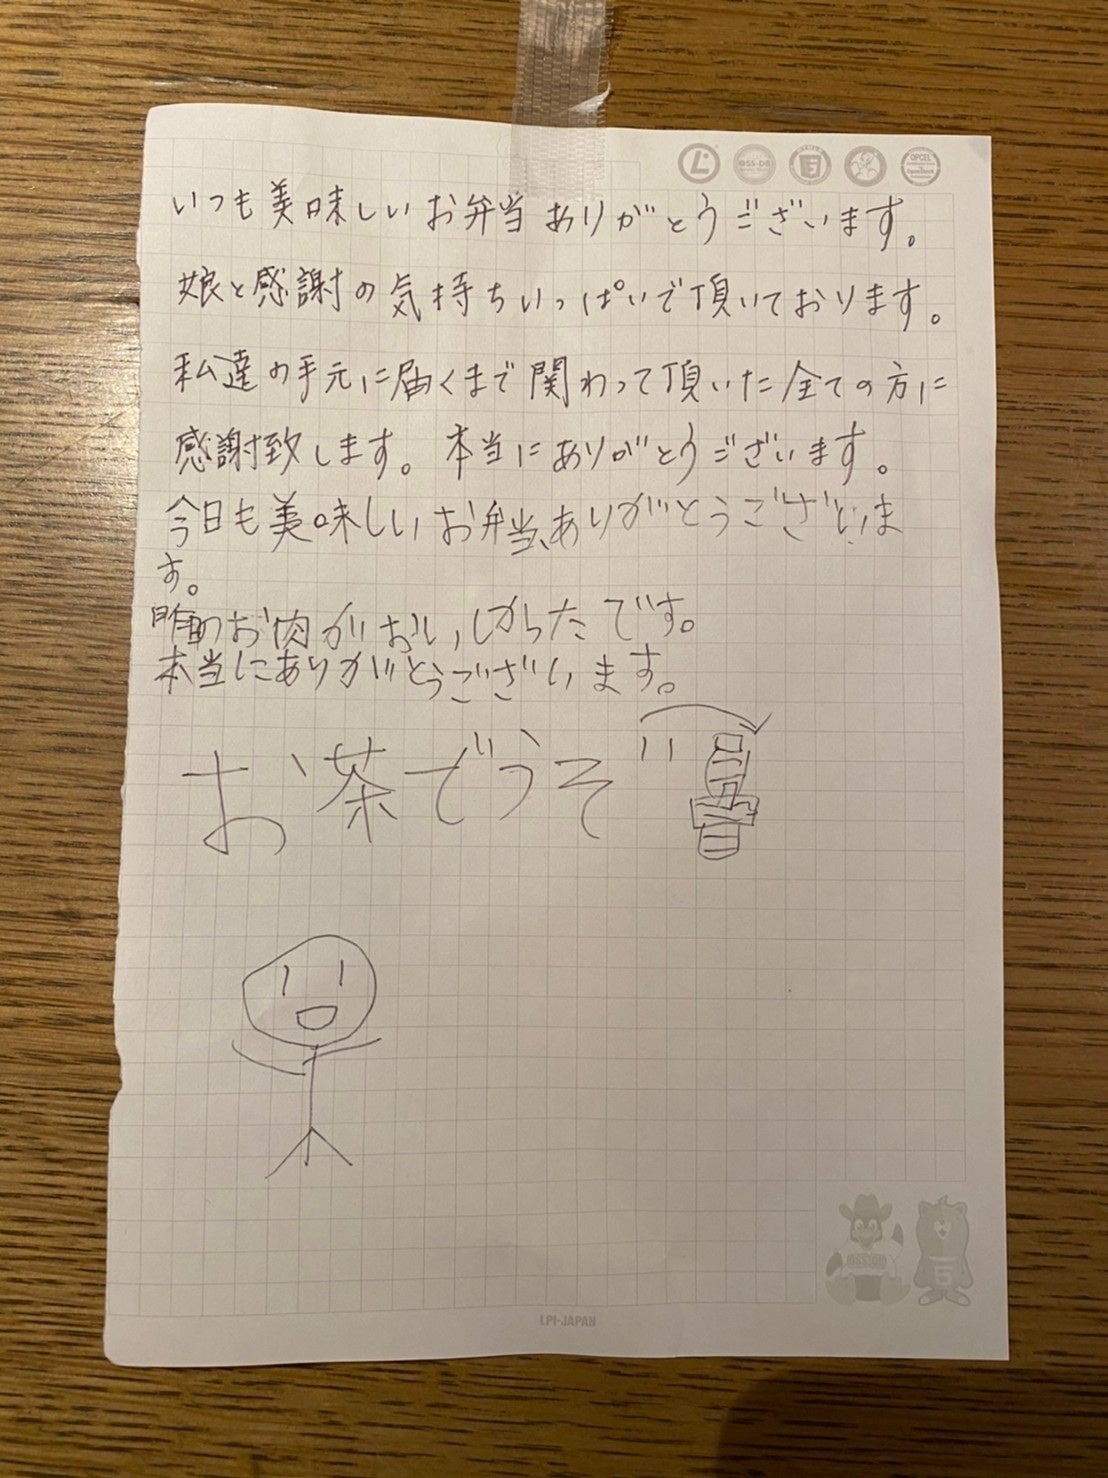 OSS-DB
HTML5
OPCEL
OpenStack
いつも美味しいお弁当ありがとうございます。
娘と感謝の気持ちいっぱいで頂いております。
私達の手元に届くまで関わって頂いた全ての方に
感謝致します。本当にありがとうございます。
今日も美味しいお弁当、ありがとうございま
す。
昨日のお肉がおいしかったです。
本当にありがとうございます。
お茶どうぞ
LPI-JAPAN